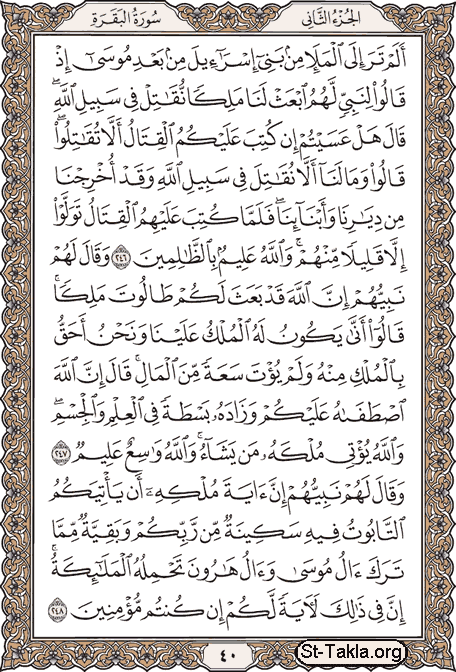 الجزء الثاني سورة البقرة
أَلَمْ تَرَ إِلَى ٱلْمَلَإِ مِنۢ بَنِىٓ إِسْرَٰٓءِيلَ مِنۢ بَعْدِ مُوسَىٰٓ إِذْ
قَالُوا۟ لِنَبِىٍّ لَّهُمُ ٱبْعَثْ لَنَا مَلِكًا نُّقَٰتِلْ فِى سَبِيلِ ٱللَّهِ ۖ
قَالَ هَلْ عَسَيْتُمْ إِن كُتِبَ عَلَيْكُمُ ٱلْقِتَالُ أَلَّا تُقَٰتِلُوا۟ ۖ
قَالُوا۟ وَمَا لَنَآ أَلَّا نُقَٰتِلَ فِى سَبِيلِ ٱللَّهِ وَقَدْ أُخْرِجْنَا
مِن دِيَٰرِنَا وَأَبْنَآئِنَا ۖ فَلَمَّا كُتِبَ عَلَيْهِمُ ٱلْقِتَالُ تَوَلَّوْا۟
إِلَّا قَلِيلًا مِّنْهُمْ ۗ وَٱللَّهُ عَلِيمٌۢ بِٱلظَّٰلِمِينَ ٢٤٦ وَقَالَ لَهُمْ
نَبِيُّهُمْ إِنَّ ٱللَّهَ قَدْ بَعَثَ لَكُمْ طَالُوتَ مَلِكًا ۚ
قَالُوٓا۟ أَنَّىٰ يَكُونُ لَهُ ٱلْمُلْكُ عَلَيْنَا وَنَحْنُ أَحَقُّ
بِٱلْمُلْكِ مِنْهُ وَلَمْ يُؤْتَ سَعَةً مِّنَ ٱلْمَالِ ۚ قَالَ إِنَّ ٱللَّهَ
ٱصْطَفَىٰهُ عَلَيْكُمْ وَزَادَهُۥ بَسْطَةً فِى ٱلْعِلْمِ وَٱلْجِسْمِ ۖ
وَٱللَّهُ يُؤْتِى مُلْكَهُۥ مَن يَشَآءُ ۚ وَٱللَّهُ وَٰسِعٌ عَلِيمٌ ٢٤٧
وَقَالَ لَهُمْ نَبِيُّهُمْ إِنَّ ءَايَةَ مُلْكِهِۦٓ أَن يَأْتِيَكُمُ
ٱلتَّابُوتُ فِيهِ سَكِينَةٌ مِّن رَّبِّكُمْ وَبَقِيَّةٌ مِّمَّا
تَرَكَ ءَالُ مُوسَىٰ وَءَالُ هَٰرُونَ تَحْمِلُهُ ٱلْمَلَٰٓئِكَةُ ۚ
إِنَّ فِى ذَٰلِكَ لَءَايَةً لَّكُمْ إِن كُنتُم مُّؤْمِنِينَ ٢٤٨
٤٠
St-Takla.org